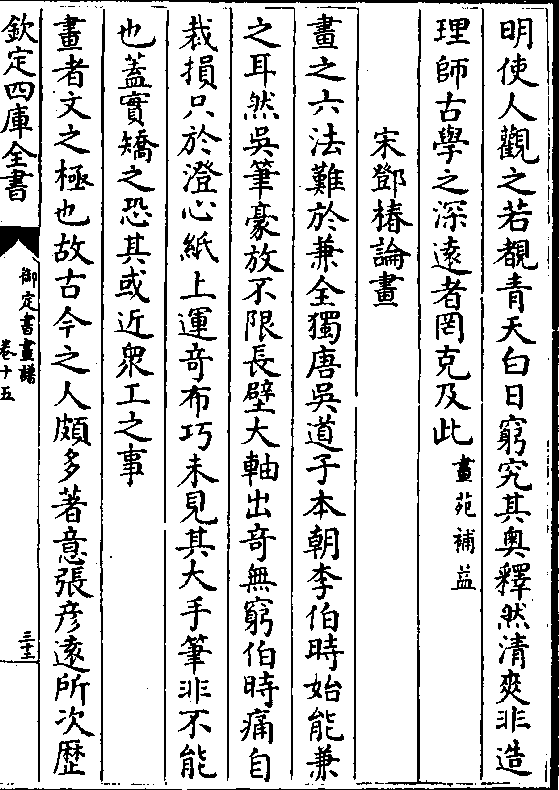 明使人觀之若覩青天白日窮究其奥釋然清爽非造
理師古學之深遠者罔克及此畫苑補益
宋鄧椿論畫
畫之六法難於兼全獨唐吳道子本朝李伯時始能兼
之耳然吳筆豪放不限長壁大軸出竒無窮伯時痛自
裁損只於澄心紙上運竒布巧未見其大手筆非不能
也蓋實矯之恐其或近衆工之事
畫者文之極也故古今之人頗多著意張彦遠所次歴
欽定四庫全書
御定書畫譜
卷十五
三十三